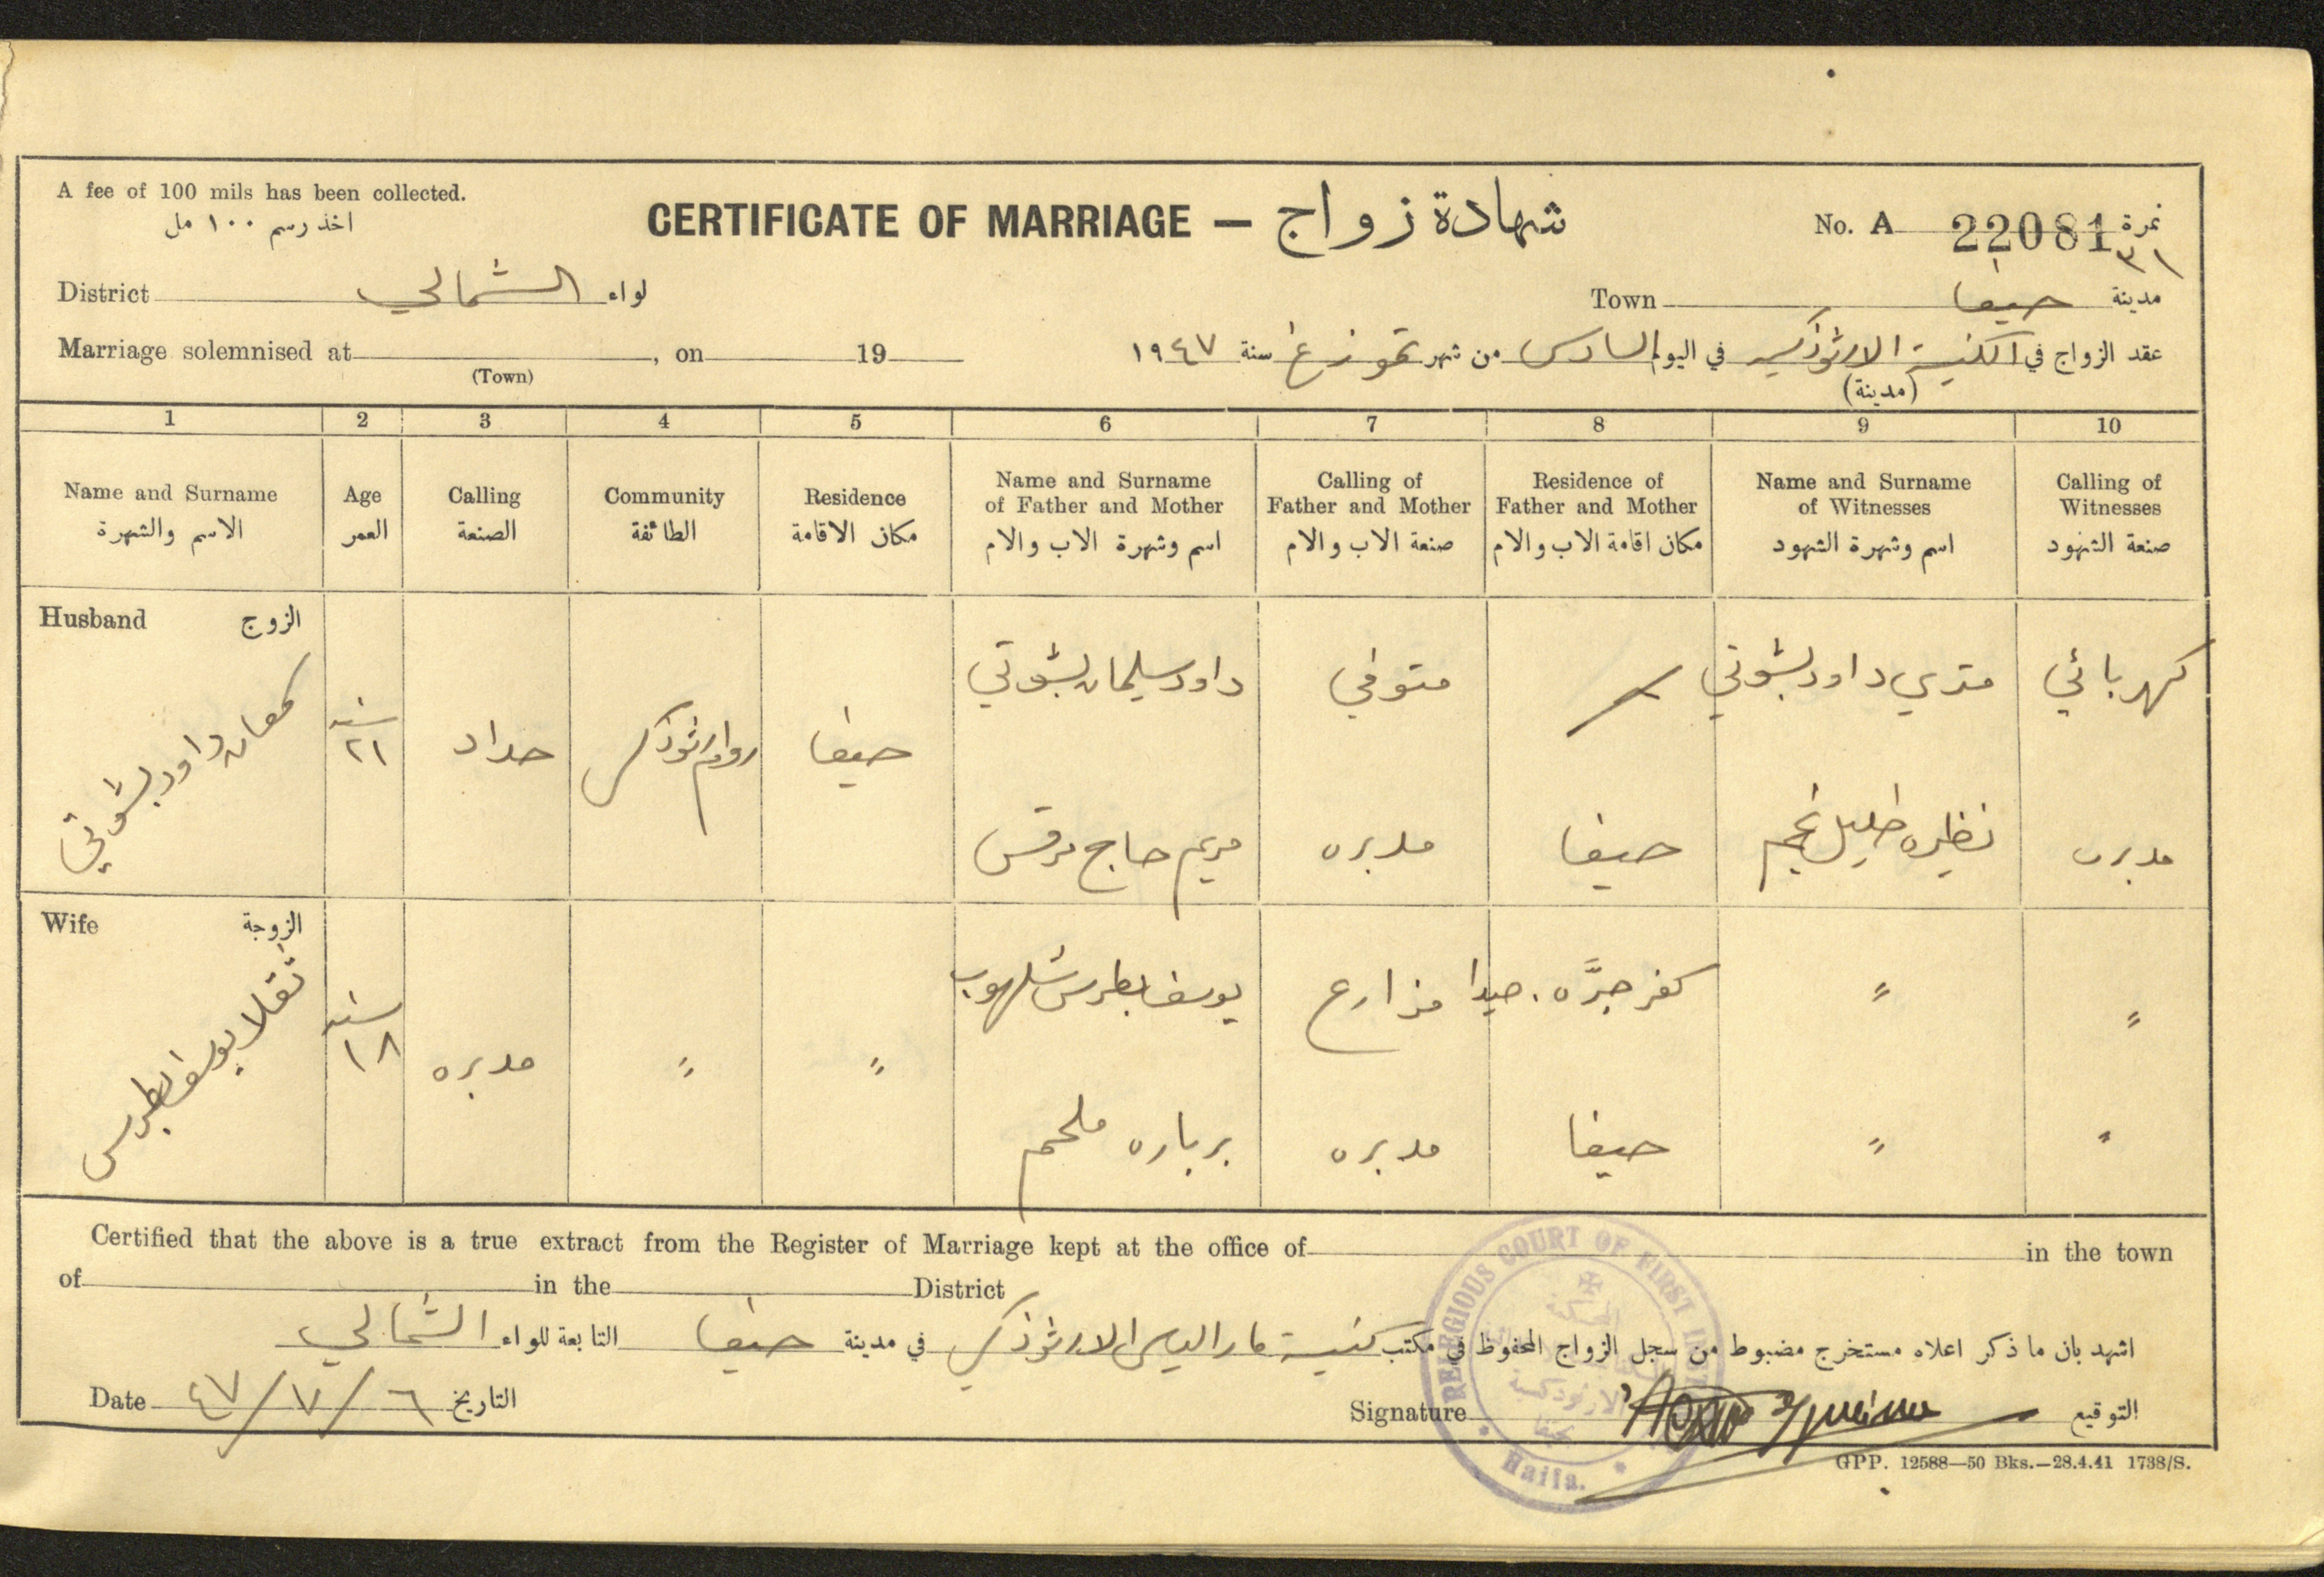 A fee of 100 mils has been collected.
اخذ رسم ١٠٠ مل
CERTIFICATE OF MARRIAGE — شهادة زواج
No. A 22081 نمرة
٣١
District الشمالي لواء
Town حيفا مدينة
Marriage solemnised at , on 19
(Town)
عقد الزواج في الكنيسة الارثوذكسية في اليوم السادس من شهر تموز سنة ١٩٤٧
(مدينة)
1 2 3 4 5 6 7 8 9 10
Name and Surname
الاسم والشهرة
Age
العمر
Calling
الصنعة
Community
الطائفة
Residence
مكان الاقامة
Name and Surname
of Father and Mother
اسم وشهرة الاب والام
Calling of
Father and Mother
صنعة الاب والام
Residence of
Father and Mother
مكان اقامة الاب والام
Name and Surname
of Witnesses
اسم وشهرة الشهود
Calling of
Witnesses
صنعة الشهود
Husband الزوج
داود بشوتي
سنة
٢١
حداد
روم ارثوذكس
حيفا
داود سليمان بشوتي
متوفي
متري داود بشوتي
كهربائي
مريم حاج مرقس
مدبره
حيفا
نظيره خليل نجم
مدبره
Wife الزوجة
تقلا يوسف بطرس
سنة
١٨
مدبره
"
"
يوسف بطرس شلهوب
مزارع
كفر جرَّه . صيدا
"
"
برباره ملحم
مدبره
حيفا
"
"
Certified that the above is a true extract from the Register of Marriage kept at the office of in the town
of in the District
اشهد بان ما ذكر اعلاه مستخرج مضبوط من سجل الزواج المحفوظ في مكتب كنيسة مار الياس الارثوذكس في مدينة حيفا التابعة للواء الشمالي
Date ٦/٧/٤٧ التاريخ
Signature التوقيع
RELEGIOUS COURT OF FIRST
الارثوذكسية
Haifa.
GPP. 12588—50 Bks.—28.4.41 1738/S.